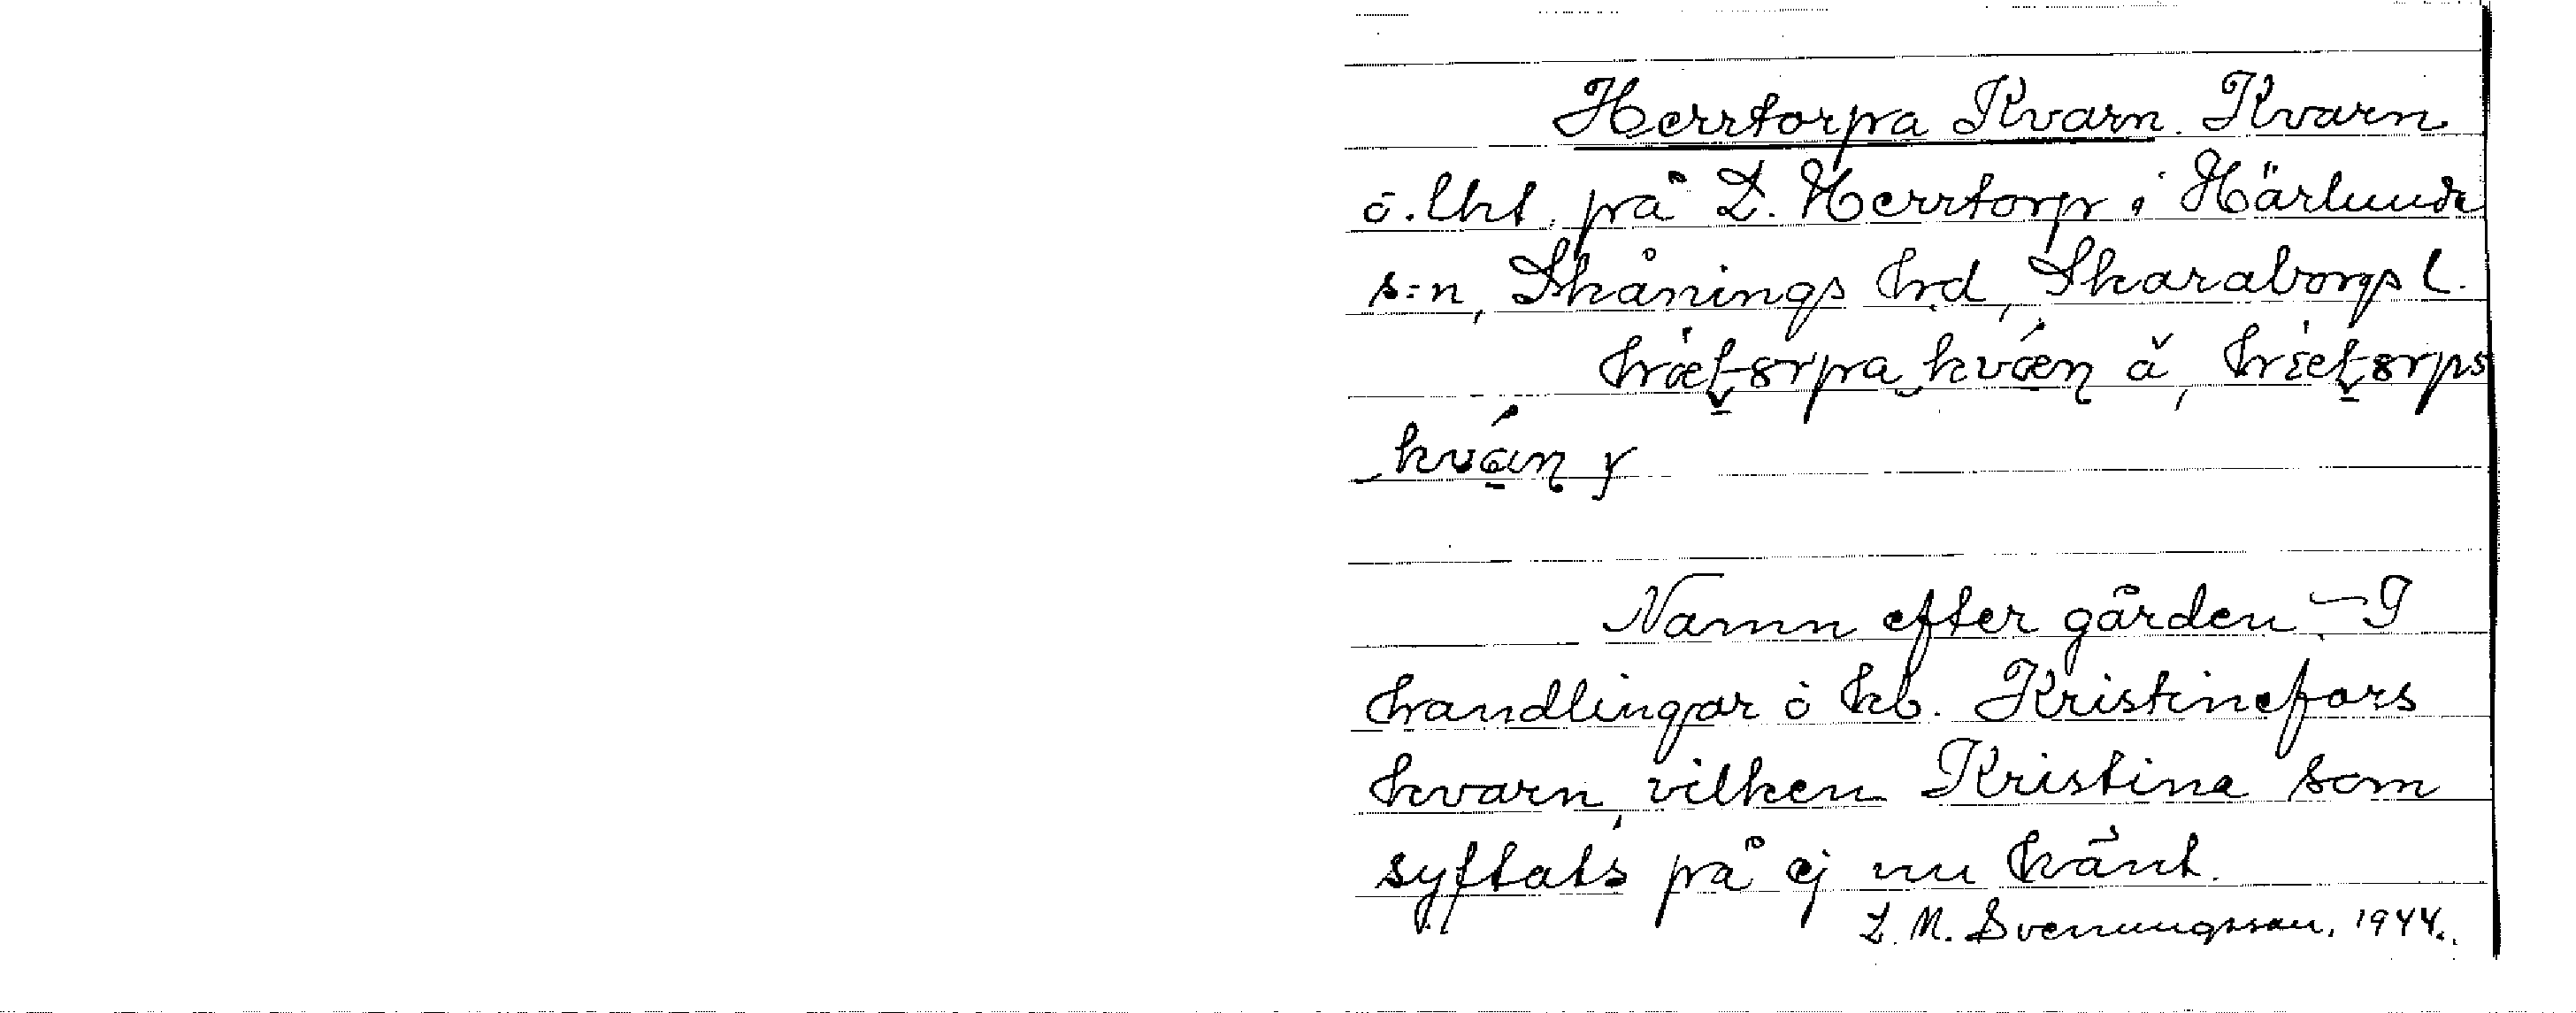 Herrtorpa Kvarn. Kvarn
o. lht. på L. Herrtorp i Härlunda
s=n, Skånings hrd, Skaraborgs l.
å,
y
Namn efter gården. – I
handlingar o kb. Kristinefors
kvarn, vilken Kristina som
syftats på ej nu känt.
L. M. Svenungsson. 1944.